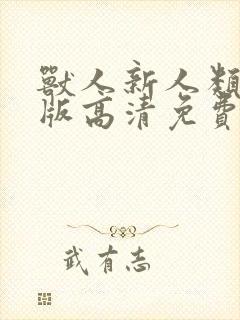 獸人新人類
版高清免費
武有志